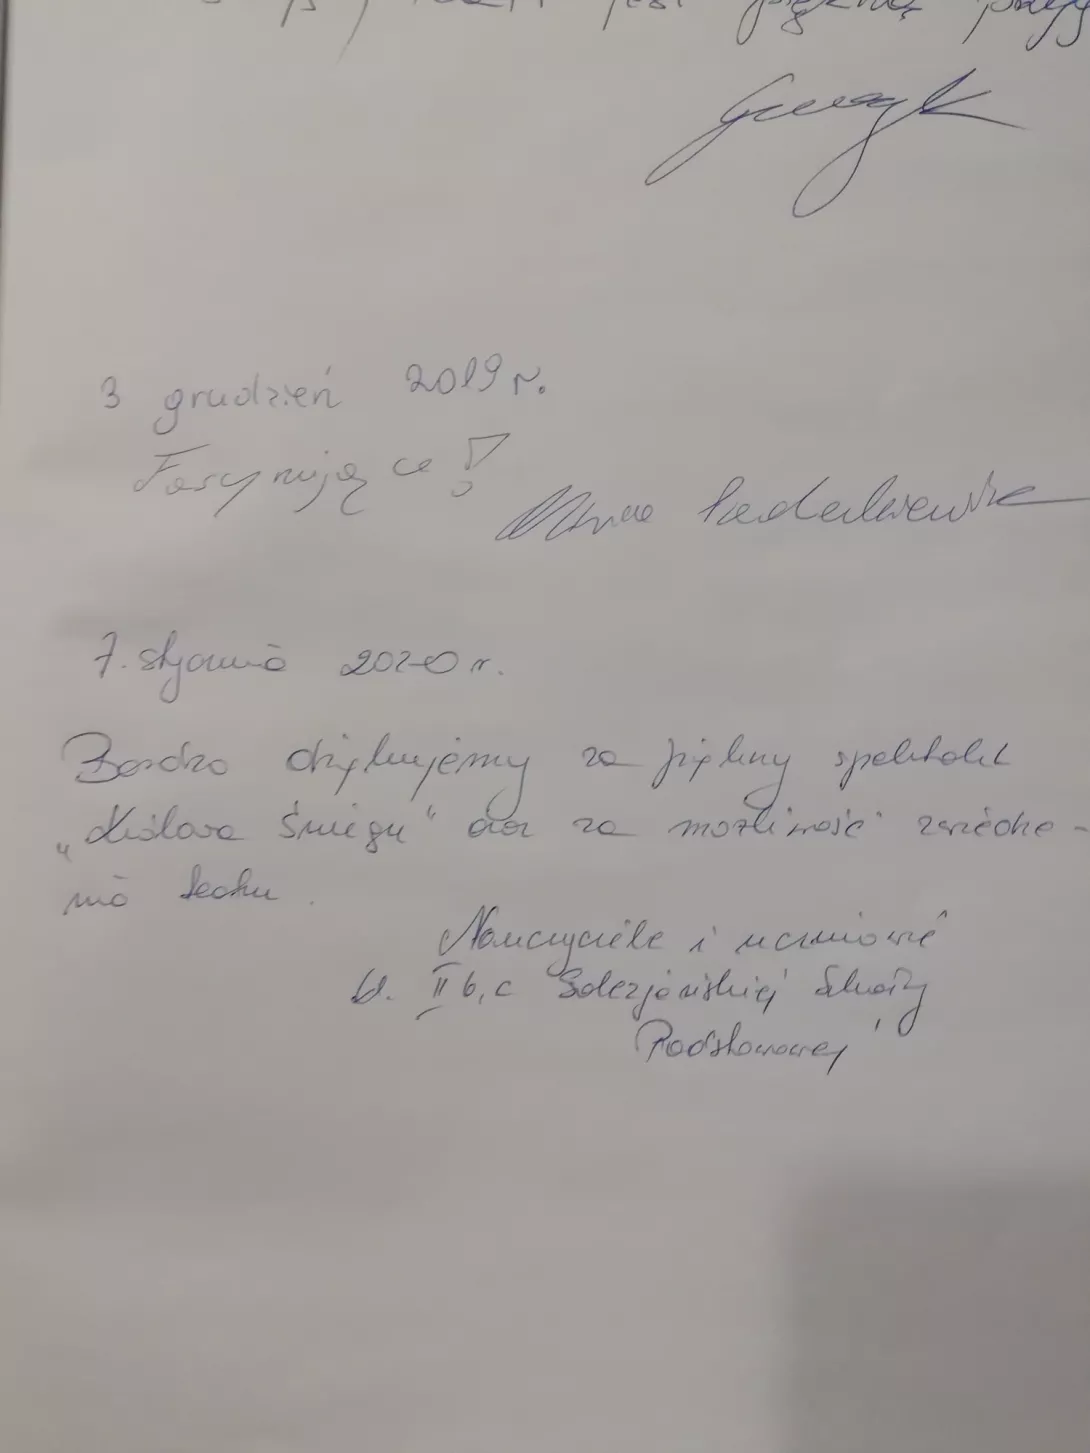 jest piękną
3 grudzień 2019 r.
Fascynujące!
Anna
7. stycznia 2020 r.
Bardzo dziękujemy za piękny spektakl
„Królowa Śniegu" oraz za możliwość zwiedze-
nia teatru.
Nauczyciele i uczniowie
kl. II b, c Salezjańskiej Szkoły
Podstawowej